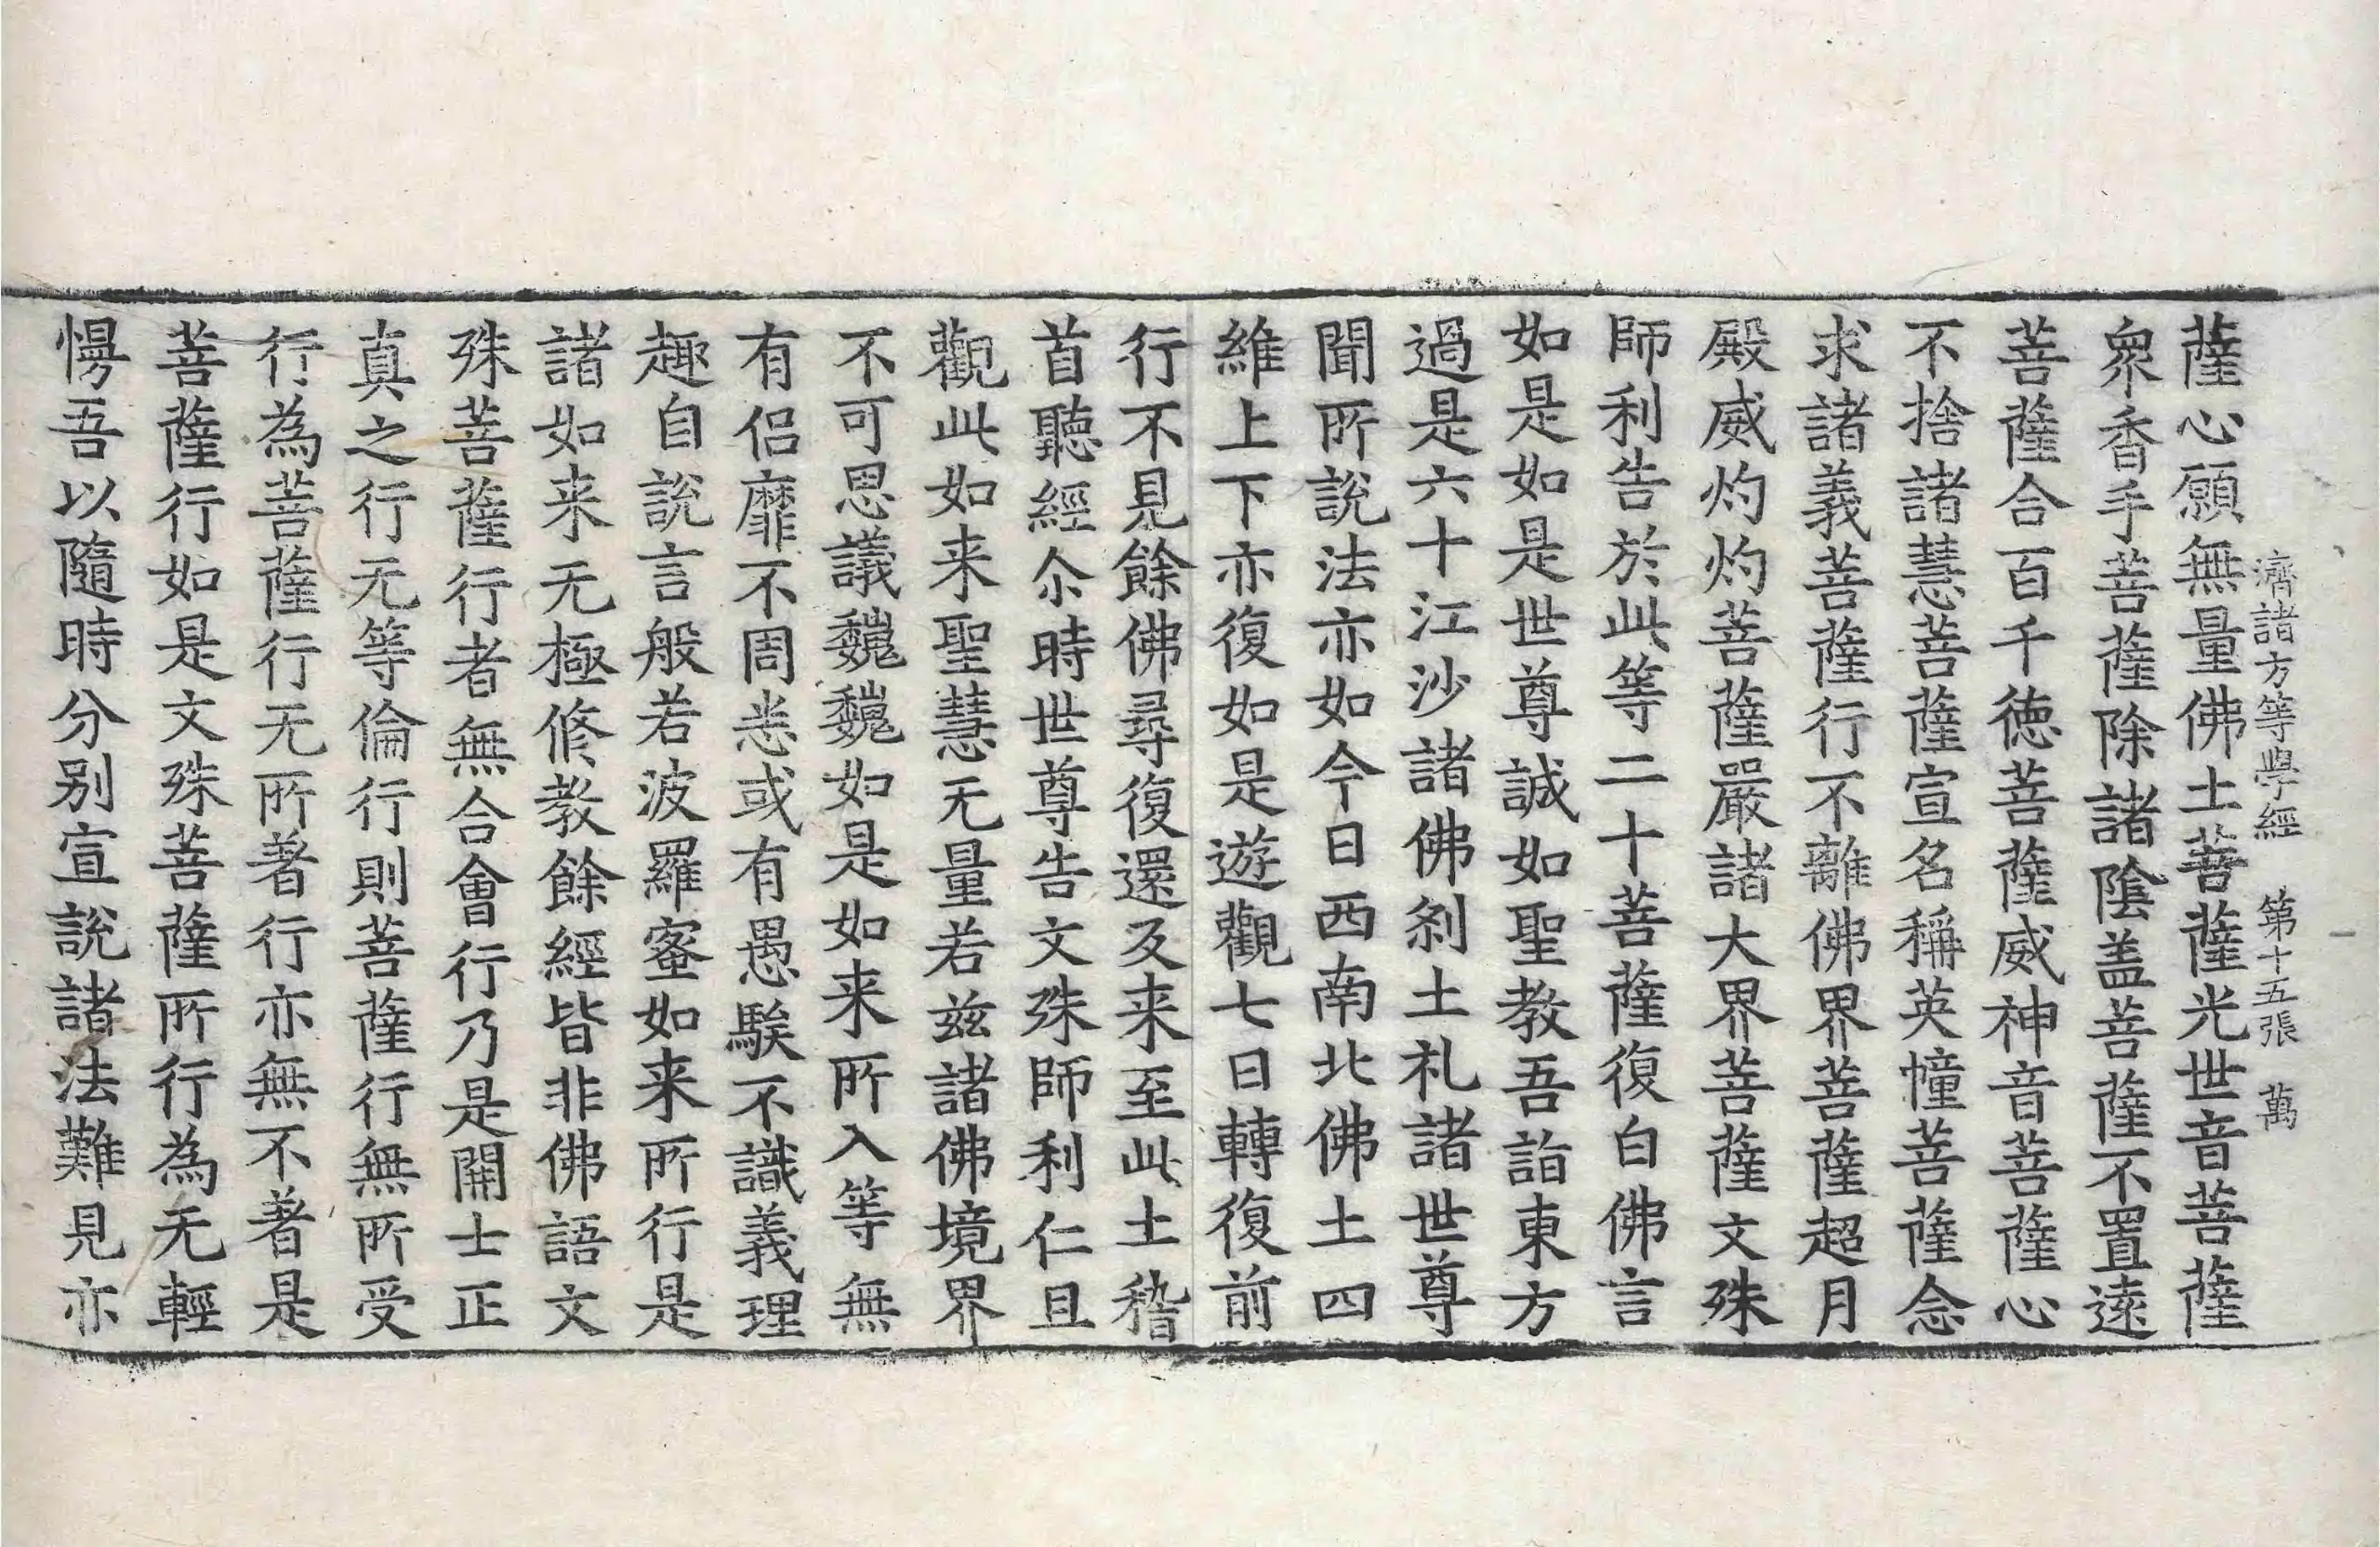 濟諸方等學經 第十五張 萬
薩心願無量佛土菩薩光世音菩薩
衆香手菩薩除諸陰盖菩薩不置遠
菩薩合百千德菩薩威神音菩薩心
不捨諸慧菩薩宣名稱英幢菩薩念
求諸義菩薩行不離佛界菩薩超月
殿威灼灼菩薩嚴諸大界菩薩文殊
師利告於此等二十菩薩復白佛言
如是如是世尊誠如聖教吾詣東方
過是六十江沙諸佛刹土礼諸世尊
聞所說法亦如今日西南北佛土四
維上下亦復如是遊觀七日轉復前
行不見餘佛尋復還及来至此土稽
首聽經尒時世尊告文殊師利仁且
觀此如来聖慧无量若兹諸佛境界
不可思議巍巍如是如来所入等無
有侣靡不周悉或有愚騃不識義理
趣自說言般若波羅蜜如来所行是
諸如来无極修教餘經皆非佛語文
殊菩薩行者無合會行乃是開士正
真之行无等倫行則菩薩行無所受
行為菩薩行无所著行亦無不著是
菩薩行如是文殊菩薩所行為无輕
愣吾以隨時分别宣說諸法難見亦